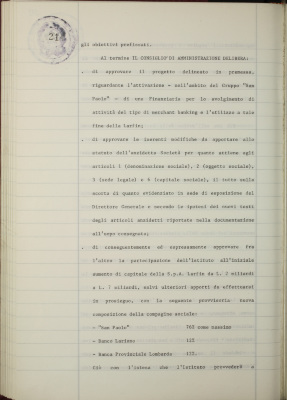 21
gli obiettivi prefissati.
Al termine IL CONSIGLIO DI AMMINISTRAZIONE DELIBERA:
. di approvare il progetto delineato in premessa,
riguardante l'attivazione - nell'ambito del Gruppo "San
Paolo" - di una Finanziaria per lo svolgimento di
attività del tipo di merchant banking e l'utilizzo a tale
fine della Larfin;
. di approvare le inerenti modifiche da apportare allo
statuto dell'anzidetta Società per quanto attiene agli
articoli 1 (denominazione sociale), 2 (oggetto sociale),
3 (sede legale) e 6 (capitale sociale), il tutto sulla
scorta di quanto evidenziato in sede di esposizione del
Direttore Generale e secondo le ipotesi dei nuovi testi
degli articoli anzidetti riportate nella documentazione
all'uopo consegnata;
. di conseguentemente ed espressamente approvare fra
l'altro la partecipazione dell'Istituto all'iniziale
aumento di capitale della S.p.A. Larfin da L. 2 miliardi
a L. 7 miliardi, salvi ulteriori apporti da effettuarsi
in prosieguo, con la seguente provvisoria nuova
composizione della compagine sociale:
- "San Paolo" 78% come massimo
- Banco Lariano 11%
- Banca Provinciale Lombarda 11%.
Ciò con l'intesa che l'Istituto provvederà a